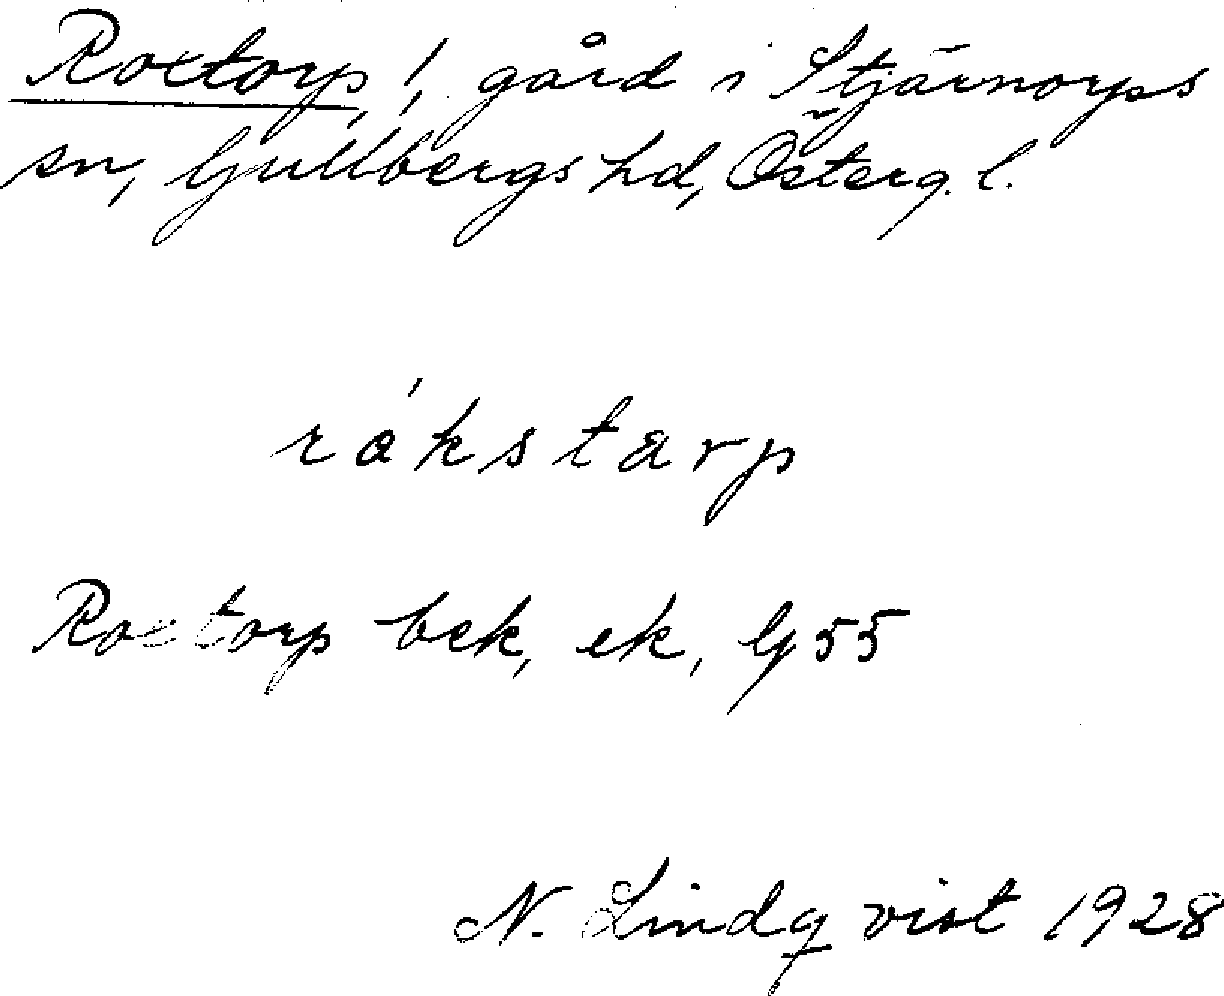 Roxtorp!, gård i Stjärnorps
sn, Gullbergs hd, Österg. l.
rákstarp
Roxtorp bek, ek, Gj 55
N. Lindqvist 1928